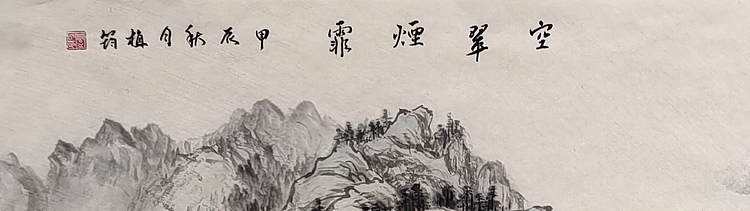 空翠煙霏 甲辰秋月植筠